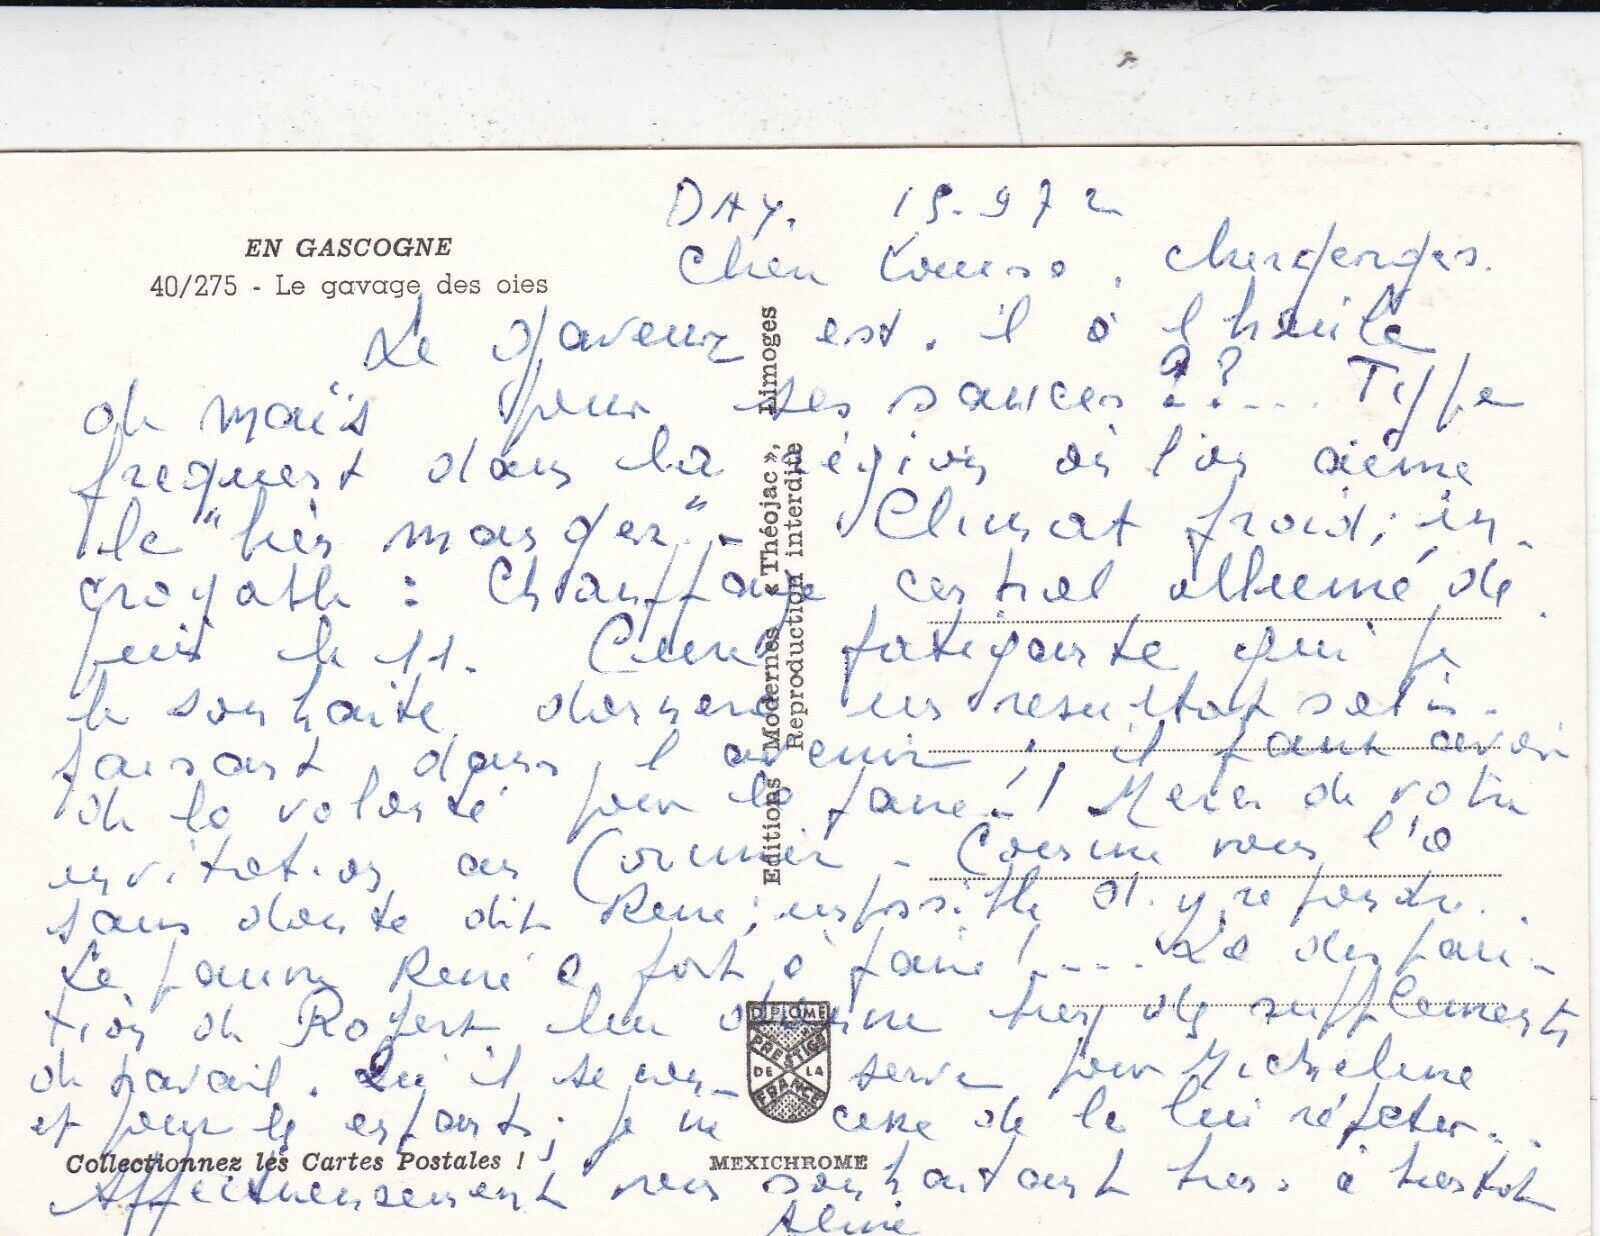 EN GASCOGNE
40/275 - Le gavage des oies
DAX. 15.972
Cher Georges.
Le gaveur est-il à l'huile
de maïs pour ses sauces ??.... Type
frequent dans la région où l'on aime
le "bien manger" - Climat froid; in-
croyable : Chauffage central allumé de
puis le 11. Cure fatigante qui je
le souhaite donnera un resultat satis-
faisant dans l'avenir ; il faut avoir
de la volonté pour la faire !! Merci de votre
invitation au Cormier - Comme vous l'a
sans doute dit René; impossible d'y repondre..
Le pauvre René a fort à faire !.... La dispari-
tion de Robert lui donne des supplements
de travail. Qu'il se con- serve pour Micheline
et pour les enfants; je ne cesse de le lui répéter...
Affectueusement vous souhaitant à bientot
Aline
Editions Modernes « Théojac », Limoges
Reproduction interdite
DIPLOME
PRESTIGE
DE LA
FRANCE
Collectionnez les Cartes Postales !
MEXICHROME